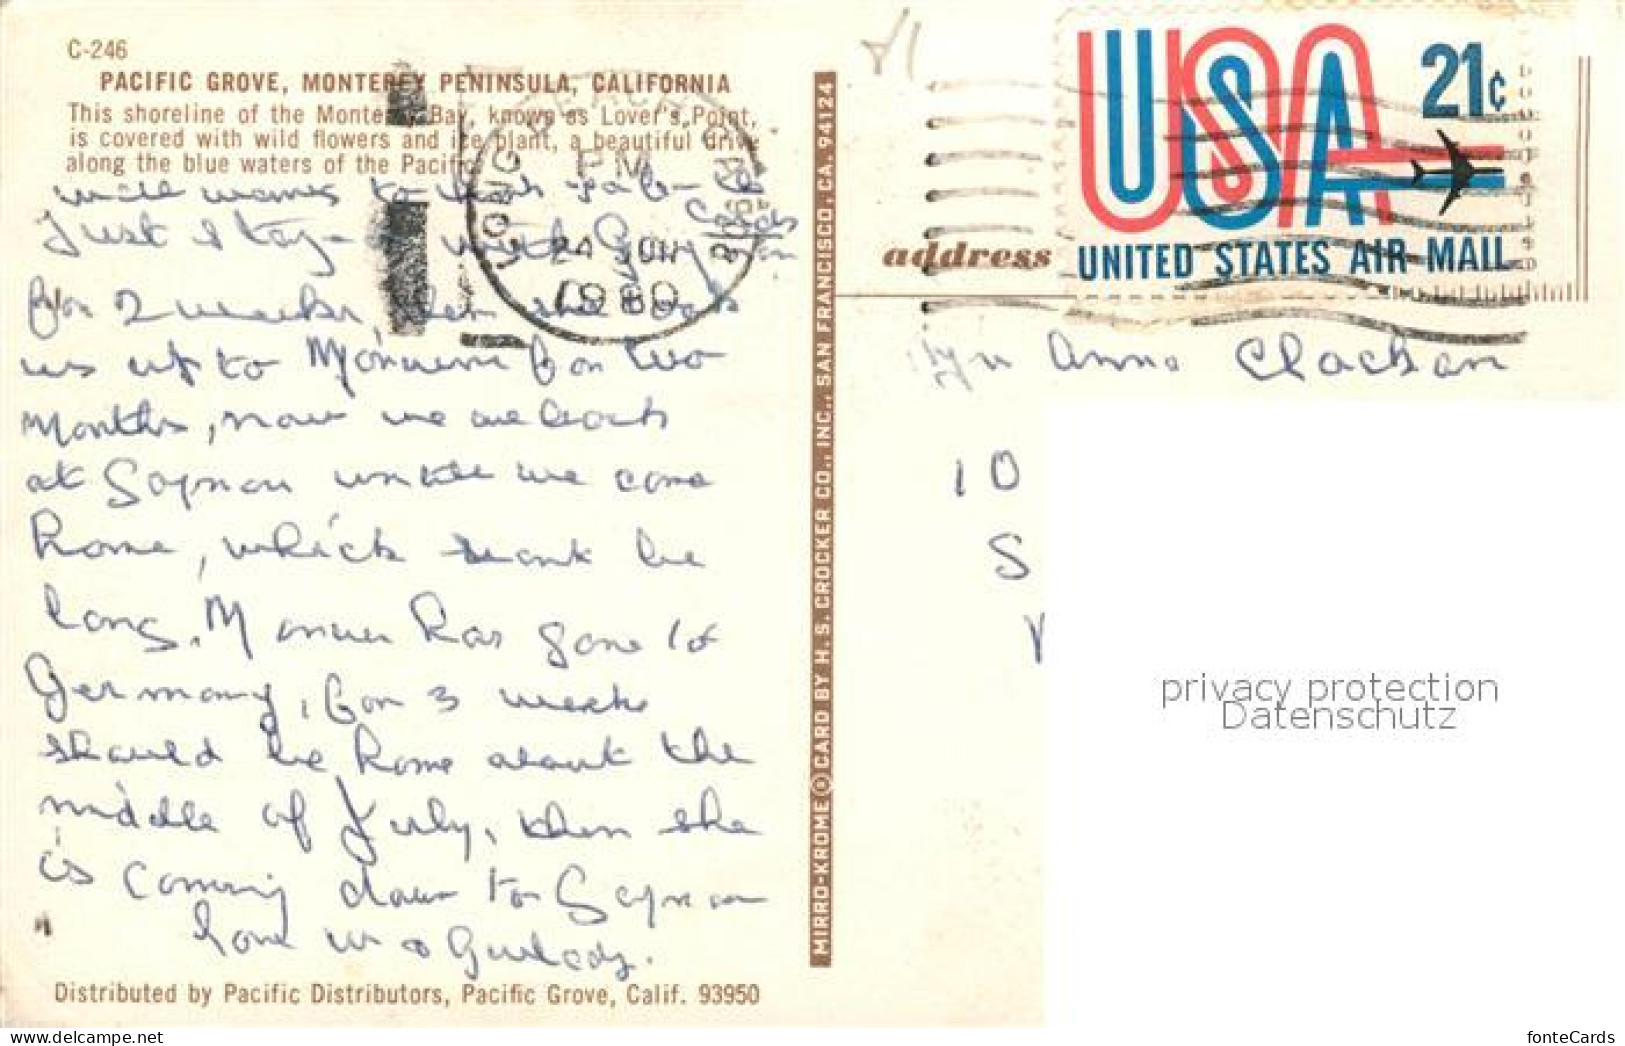 C-246
PACIFIC GROVE, MONTEREY PENINSULA, CALIFORNIA
This shoreline of the Monterey Bay, known as Lover's Point,
is covered with wild flowers and ice plant, a beautiful drive
along the blue waters of the Pacific
Just stay
for 2 weeks, then she took
us up to for two
months, now we are back
at until we come
home, which wont be
long. has gone to
Germany, for 3 weeks
should be home about the
middle of July, then she
is coming down to
love
Distributed by Pacific Distributors, Pacific Grove, Calif. 93950
LONG BEACH
PM
24 JUN
1980
MIRRO-KROME ® CARD BY H. S. CROCKER CO., INC., SAN FRANCISCO, CA. 94124
USA
21c
UNITED STATES AIR MAIL
address
Anna Clachan
10
S
privacy protection
Datenschutz
fonteCards